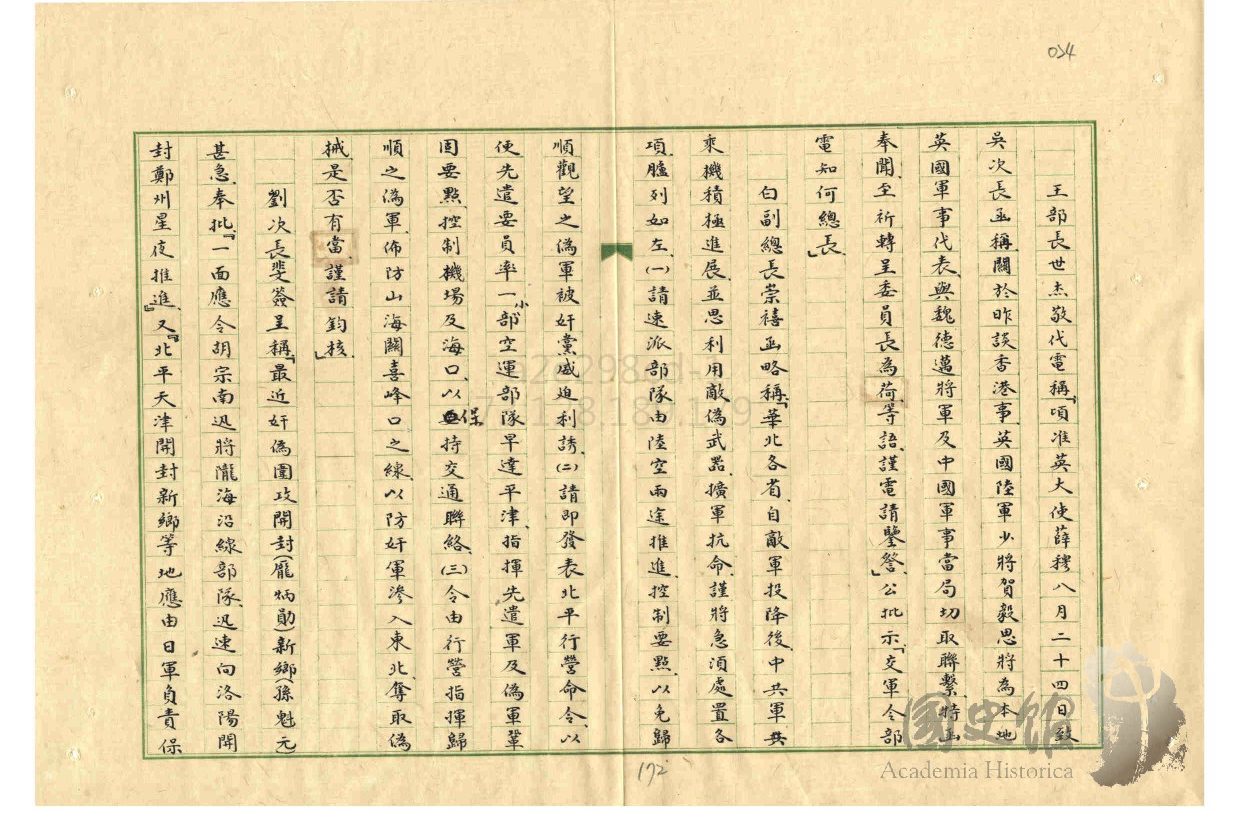 024
王部長世杰敬代電稱「頃准英大使薛穆八月二十四日致
吳次長函稱關於昨談香港事、英國陸軍少將賀毅思將為本地
英國軍事代表、與魏德邁將軍及中國軍事當局切取聯繫、特函
奉聞、至祈轉呈委員長為荷等語、謹電請鑒詧」公批示「交軍令部
電知何總長」
白副總長崇禧函略稱「華北各省、自敵軍投降後、中共軍共
乘機積極進展、並思利用敵偽武器、擴軍抗命、謹將急須處置各
項臚列如左、(一)請速派部隊由陸空兩途推進、控制要點、以免歸
順觀望之偽軍被奸黨威迫利誘、(二)請即發表北平行營命令、以
便先遣要員率一小部空運部隊早達平津、指揮先遣軍及偽軍鞏
固要點、控制機場及海口、以保持交通聯絡、(三)令由行營指揮歸
順之偽軍、佈防山海關喜峰口之線、以防奸軍滲入東北、奪取偽
械、是否有當、謹請鈞核」
劉次長斐簽呈稱「最近奸偽圍攻開封(龐炳勛)新鄉(孫魁元
甚急、奉批『一面應令胡宗南迅將隴海沿線部隊、迅速向洛陽開
封鄭州星夜推進』、又『北平天津開封新鄉等地應由日軍負責保
172
國史館
Academia Historica